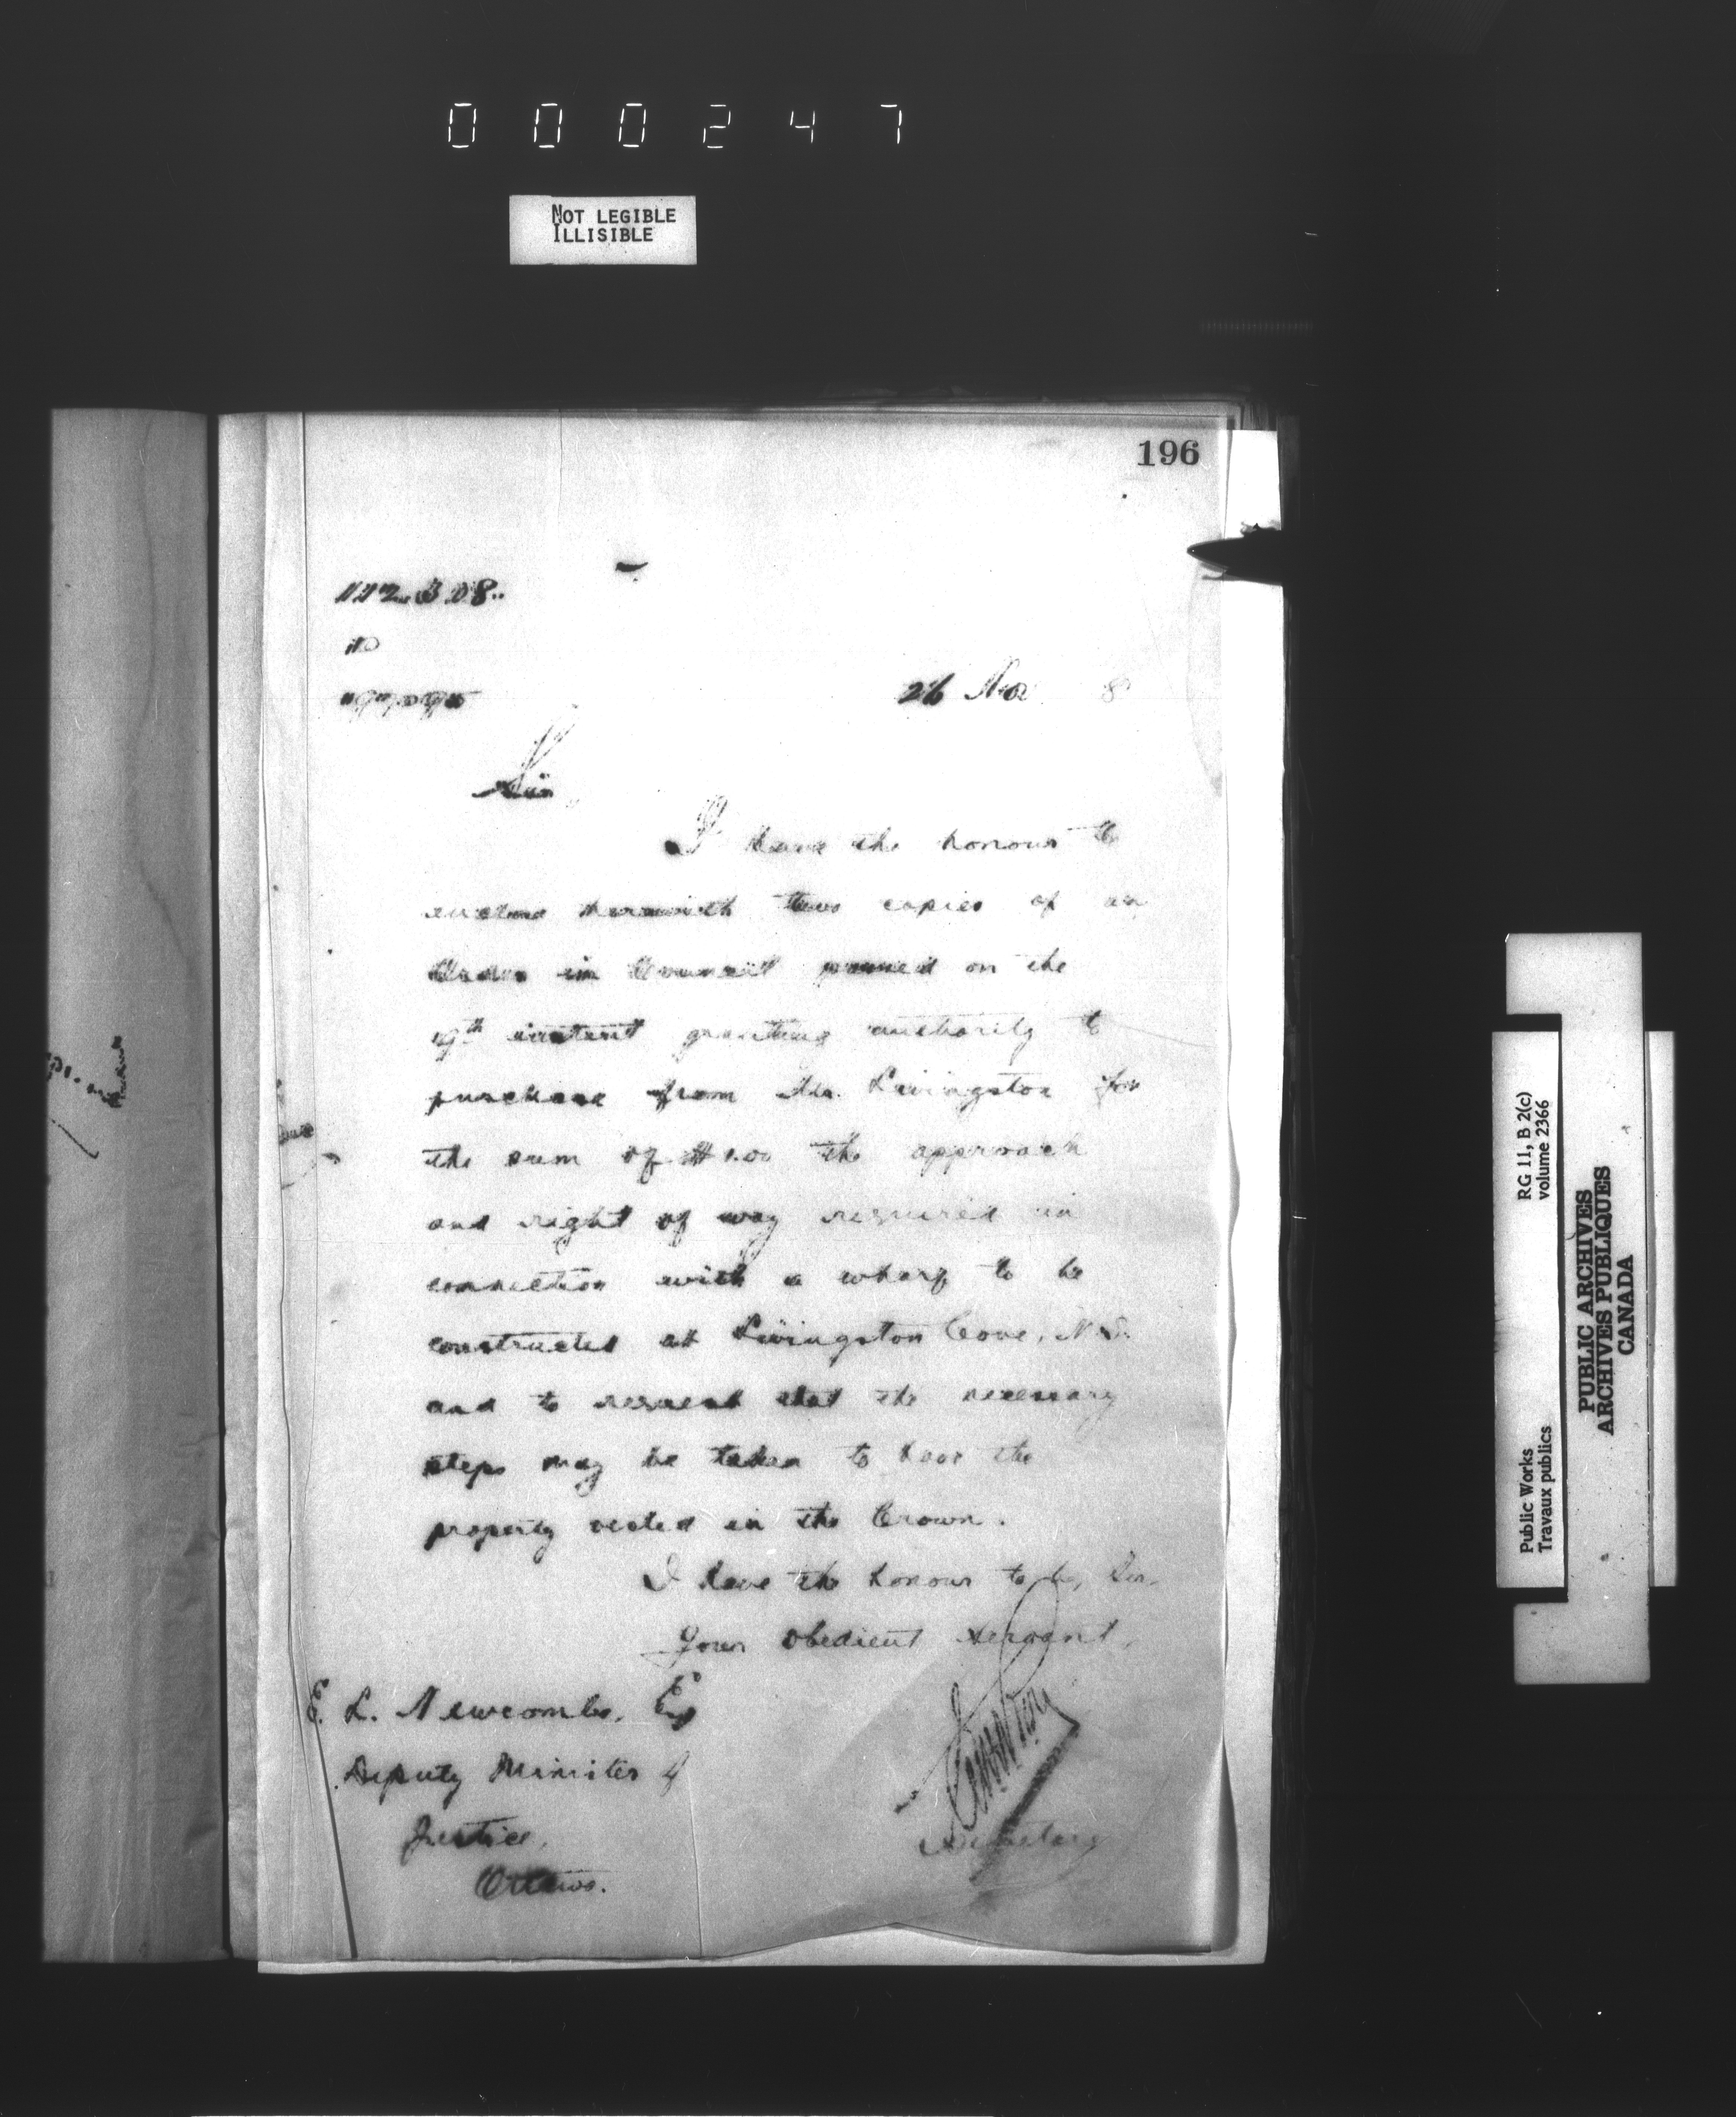 000247
NOT LEGIBLE
ILLISIBLE
196
26 Nov 8
Sir,
I have the honour to
enclose herewith two copies of an
Order in Council passed on the
19th instant granting authority to
purchase from Mr. Livingston for
the sum of $1.00 the approach
and right of way required in
connection with a wharf to be
constructed at Livingston Cove, N.S.
and to request that the necessary
steps may be taken to have the
property vested in the Crown.
I have the honour to be, Sir,
Your obedient servant,
E. L. Newcombe, Esq
Deputy Minister of
Justice,
Ottawa.
Secretary
Public Works
Travaux publics
RG 11, B 2(c)
volume 2366
PUBLIC ARCHIVES
ARCHIVES PUBLIQUES
CANADA